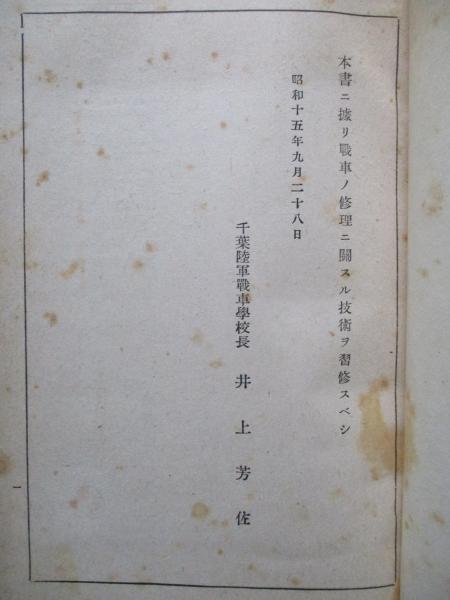 本書ニ據リ戰車ノ修理ニ關スル技術ヲ習修スベシ
昭和十五年九月二十八日
千葉陸軍戰車學校長　井上芳佐
一